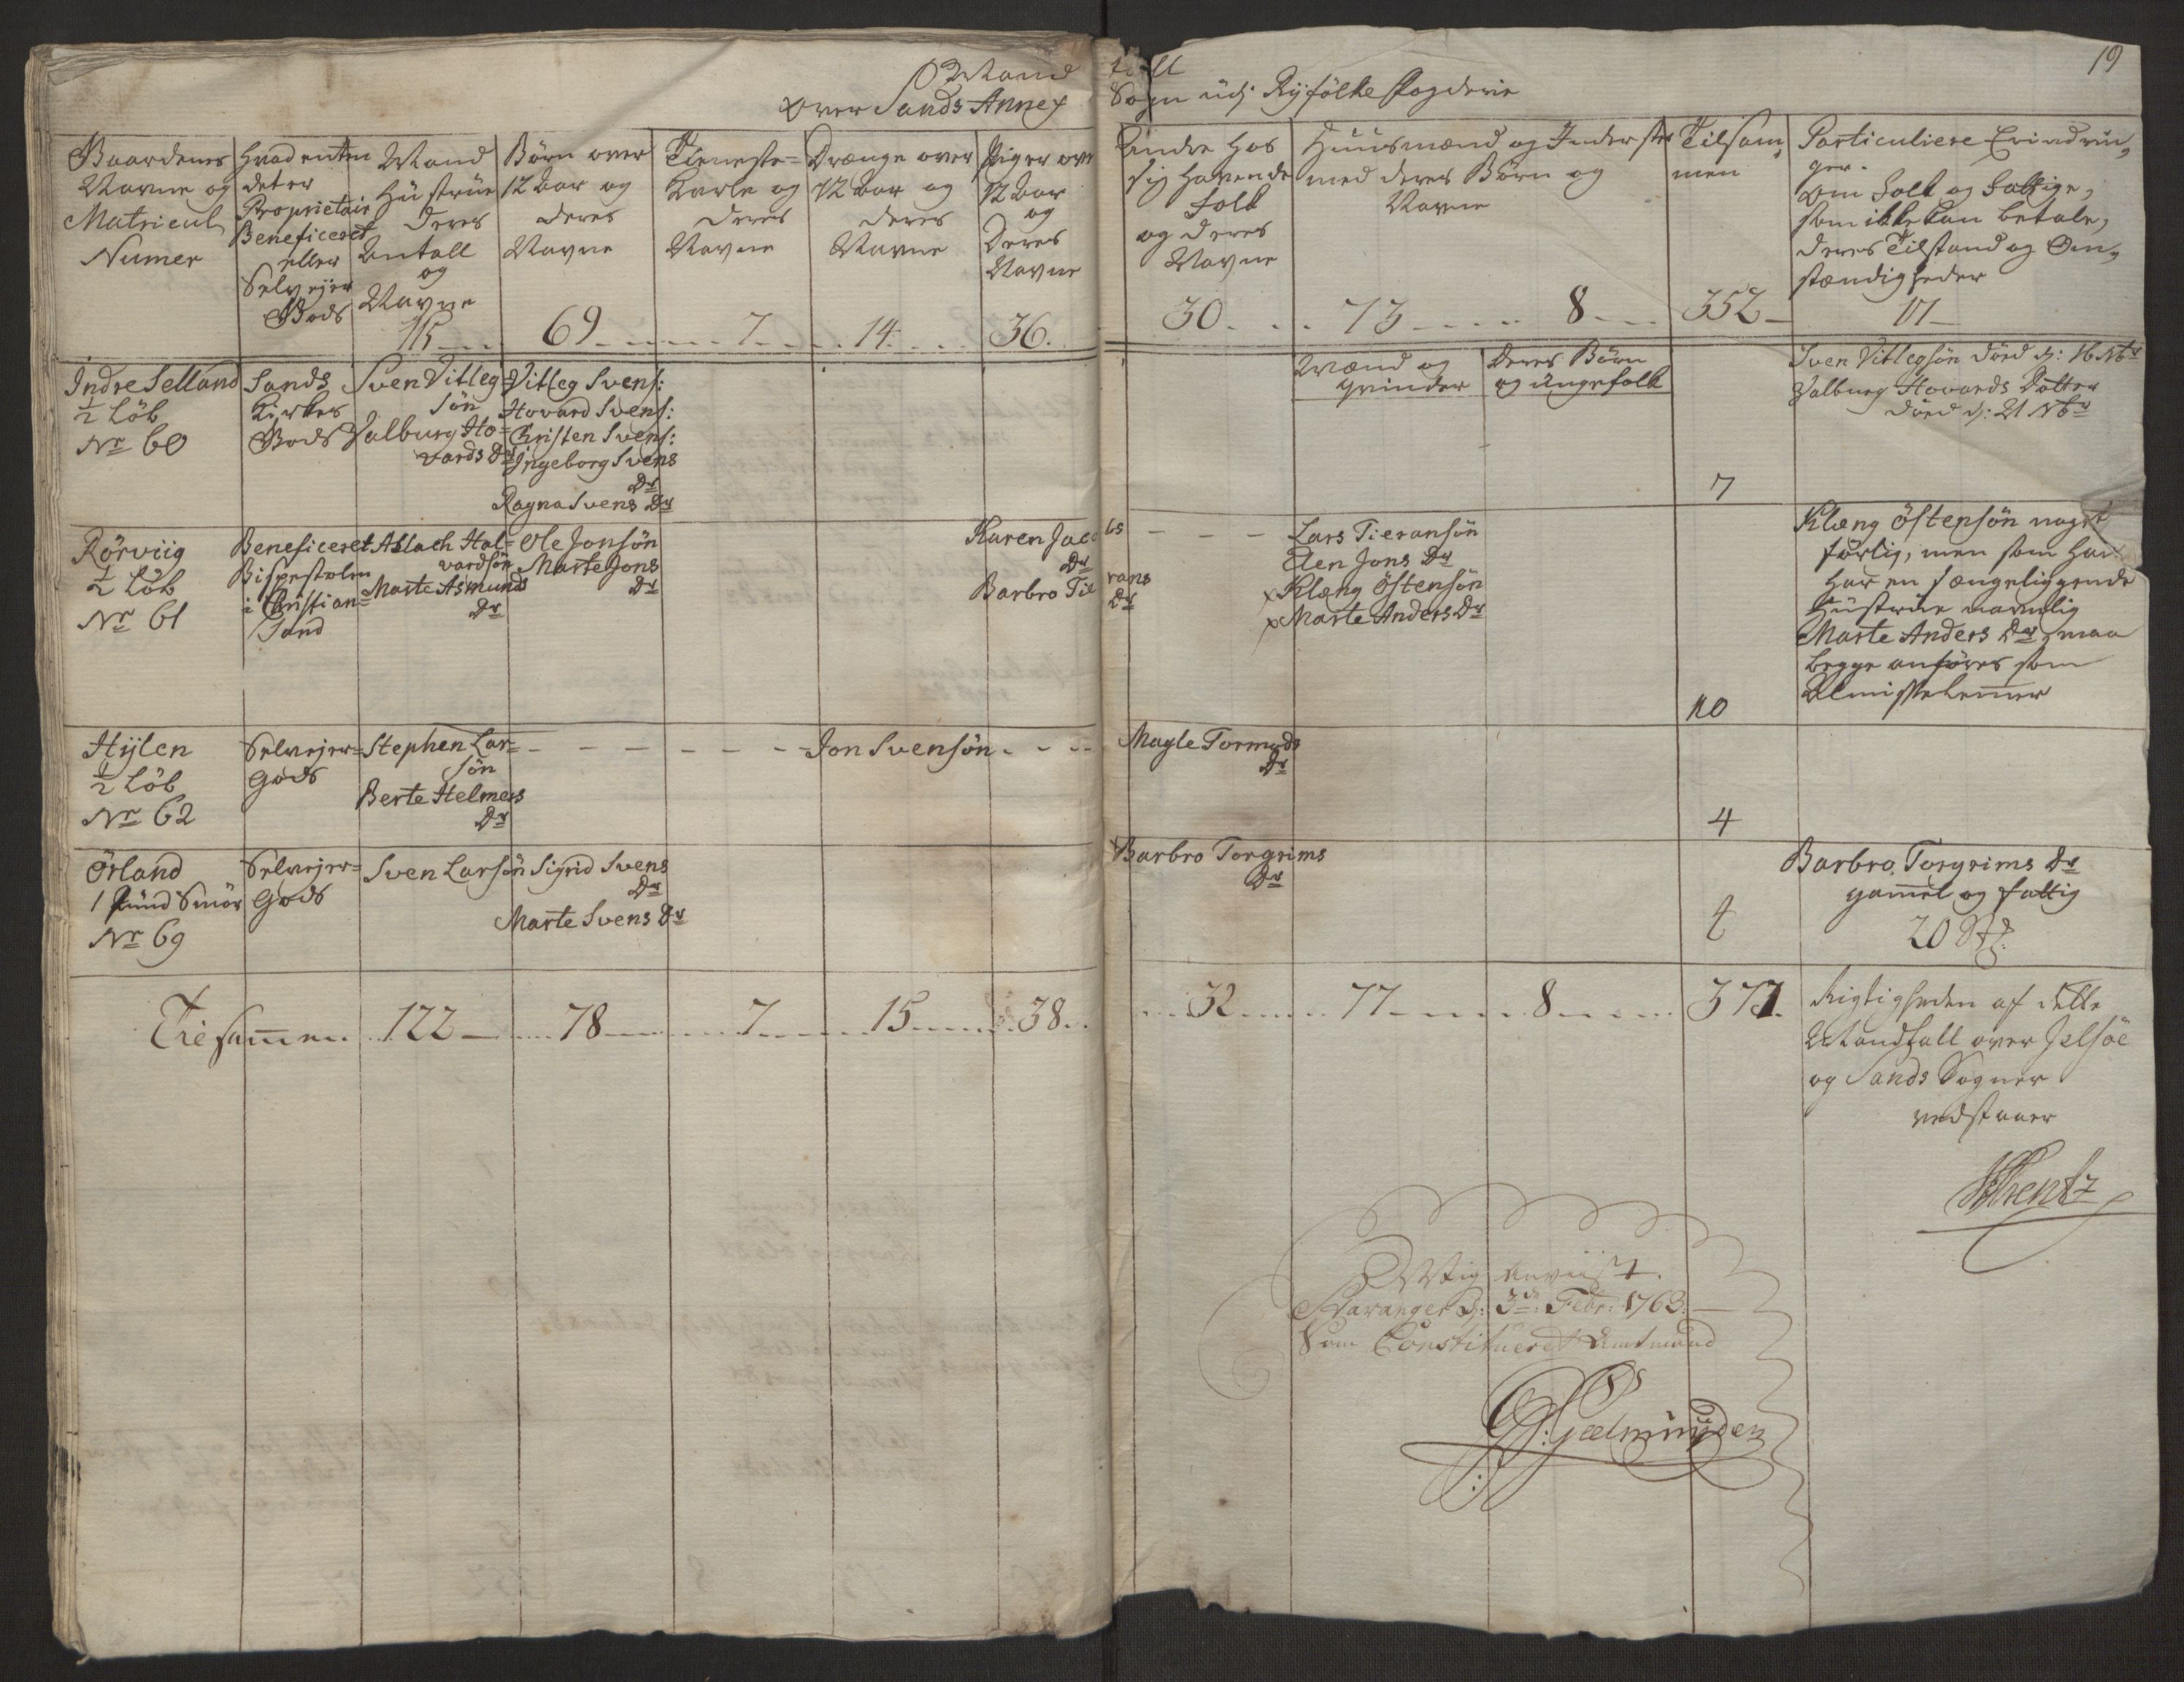 Mand tall
over Sands Annex Sogn udj Ryfølke Fogderie
19
Gaardenes
Navne og
Matricul
Numer
Hvad enten
det er
Proprietair
Beneficeret
eller
Selvejer
Gods
Mand
Hustrue
deres
Antall
og
Navne
Børn over
12 Aar og
deres
Navne
Tieneste=
Karle og
deres
Navne
Drænge over
12 Aar og
deres
Navne
Piger over
12 Aar
og
Deres
Navne
Andre hos
sig havende
folk
og deres
Navne
Huusmænd og Inderster
med deres Børn og
Navne
Tilsam,
men
Particuliere Erindrin,
ger.
Om Folk og Fattige,
som ikke kan betale,
deres Tilstand og Om,
stændigheder
115 69 7 14 36. 30 73 8 352 11
Mænd og
qvinder
Deres Børn
og ungefolk
Indre Selland
1/2 Løb
Nr 60
Sands
Kirkes
Gods
Sven Vitleg=
søn
Valburg Ho=
vards Dr
Vitleg Svens:
Hovard Svens:
Christen Svens:
Ingeborg Svens
Dr
Ragna Svens Dr
7
Sven Vitlegsøn døed d: 16 Nbr
Valburg Hovards Datter
døed d: 21 Nbr
Rørviig
1/2 Løb
Nr 61
Beneficeret
Bispestolen
i Christian=
sand
Aslach Hal=
vardsøn
Marte Asmunds
Dr
Ole Jonsøn
Marte Jons
Dr
Karen Jacobs
Dr
Barbro Tierans
Dr
Lars Tieransøn
Elen Jons Dr
x Klæng Østensøn
x Marte Anders Dr
10
Klæng Østensøn noget
førlig, men som han
har en sængeliggende
Hustrue navnlig
Marte Anders Dr, maa
begge anføres som
Almisselemmer
Hÿlen
1/2 Løb
Nr 62
Selvejer=
Gods
Stephen Lar=
søn
Berte Helmers
Dr
Jon Svensøn
Magle Tormods
Dr
4
Ørland
1 Pund Smør
Nr 69
Selvejer=
Gods
Sven Larsøn
Sigrid Svens
Dr
Marte Svens Dr
Barbro Torgrims
Dr
4
Barbro Torgrims Dr
gammel og fattig
20
Tilsammen 122 78 7 15 38 32 77 8 377.
Rigtigheden af dette
Mandtall over Jelsøe
og Sands Sogner
vedstaaer
Rigtig anviist.
Stavanger d: 3d: Febr: 1763.
Som Constitueret Amtmand